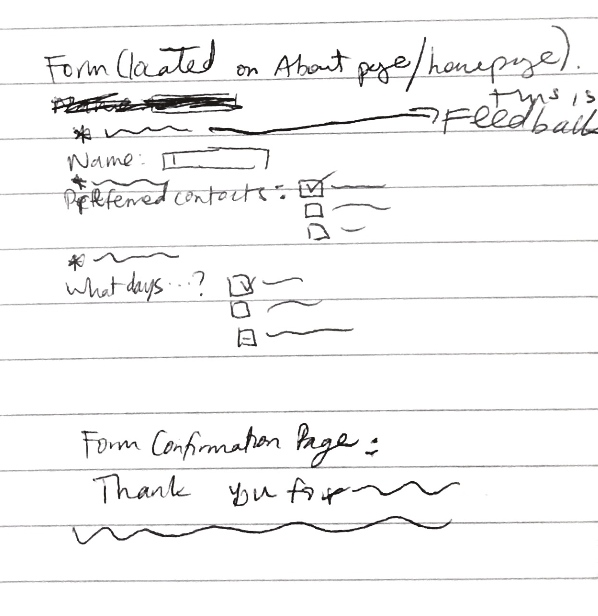 Form (located on About page/homepage).
* this is
Feedback
Name:
*
Preferred contacts:
*
What days...?
Form Confirmation Page:
Thank you for